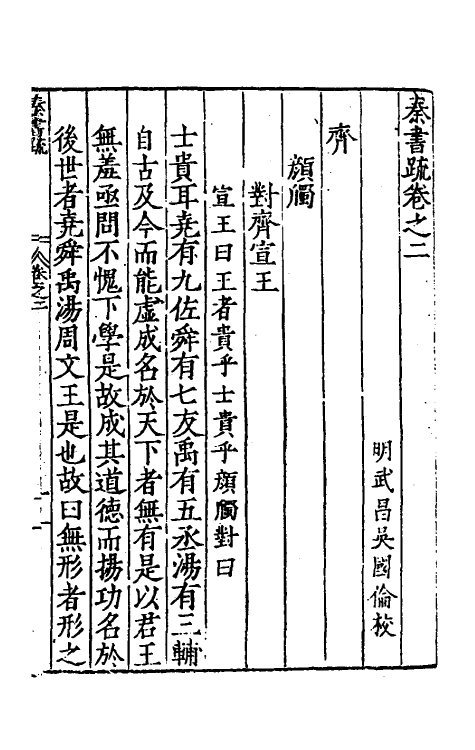 秦書疏卷之二
明武昌吳國倫校
齊
顏觸
對齊宣王
宣王曰王者貴乎士貴乎顏觸對曰
士貴耳堯有九佐舜有七友禹有五丞湯有三輔
自古及今而能虛成名於天下者無有是以君王
無羞亟問不愧下學是故成其道德而揚功名於
後世者堯舜禹湯周文王是也故曰無形者形之
秦書疏
卷之二